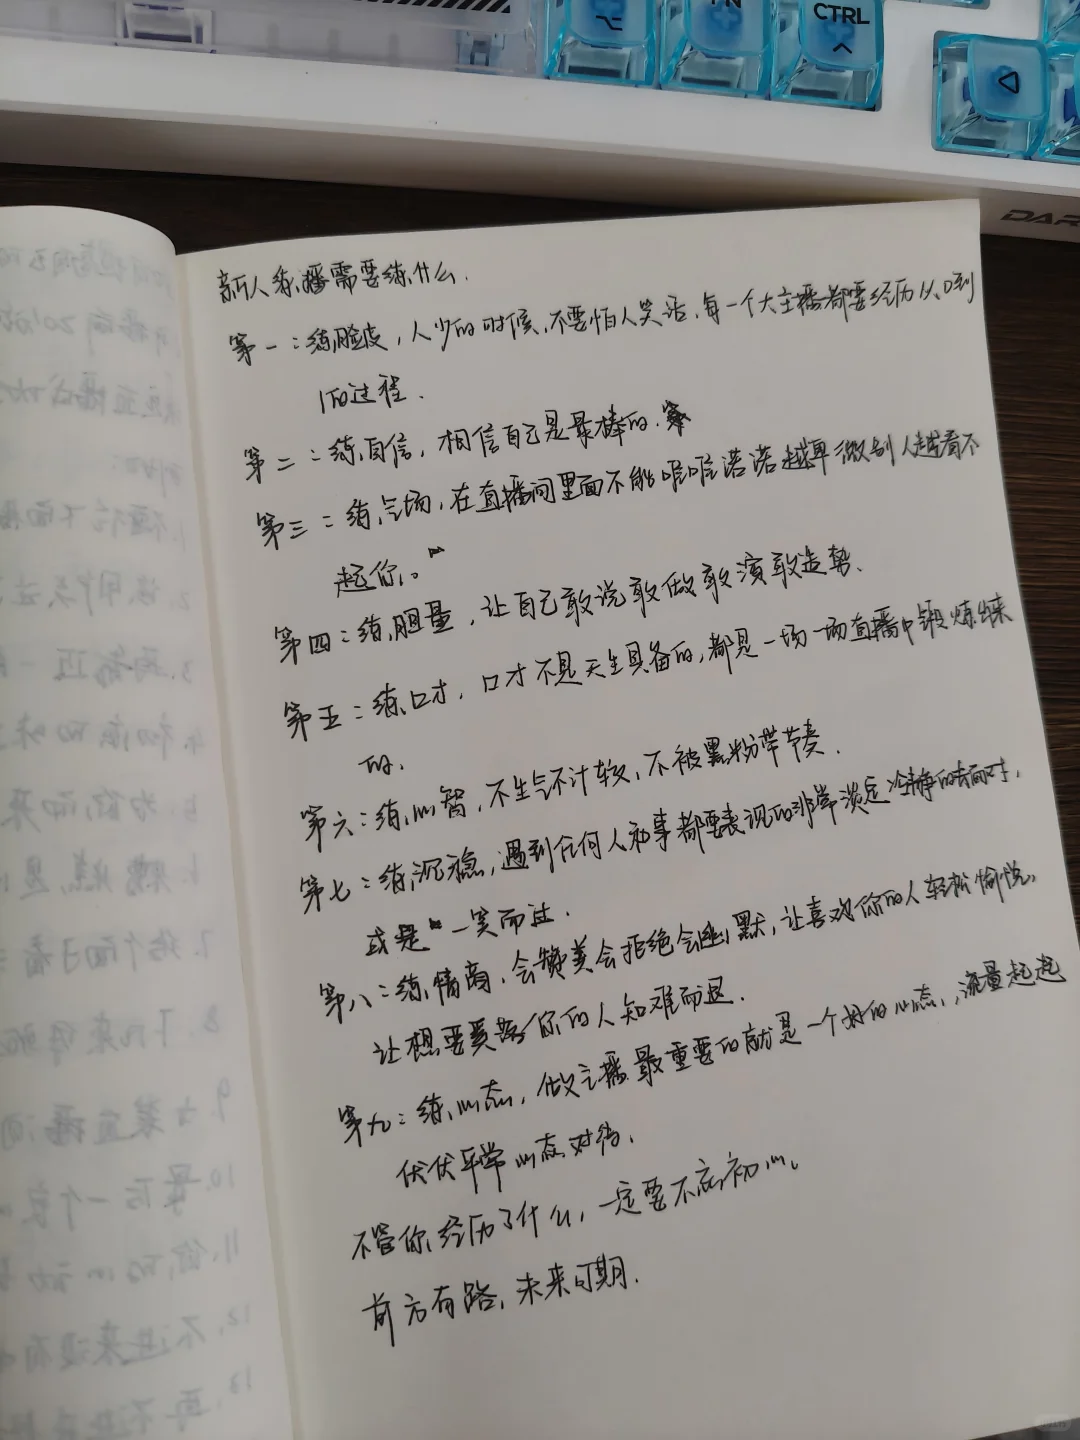 FN
CTRL
DAR
新人练播需要练什么.
第一:练脸皮,人少的时候,不要怕人笑话,每一个大主播都要经历从0到
1的过程.
第二:练自信,相信自己是最棒的.
第三:练气场,在直播间里面不能唯唯诺诺越卑微别人越看不
起你。
第四:练胆量,让自己敢说敢做敢演敢造势、
第五:练口才,口才不是天生具备的,都是一场一场直播中锻炼出来
的.
第六:练心智,不生气不计较,不被黑粉带节奏.
第七:练沉稳,遇到任何人和事都要表现的非常淡定冷静的去面对,
或是一笑而过.
第八:练情商,会赞美会拒绝会幽默,让喜欢你的人轻松愉悦。
让想要冀你的人知难而退.
第九:练心态,做主播最重要的就是一个好的心态,流量起起
伏伏平常心态对待.
不管你经历了什么,一定要不忘初心。
前方有路,未来可期.